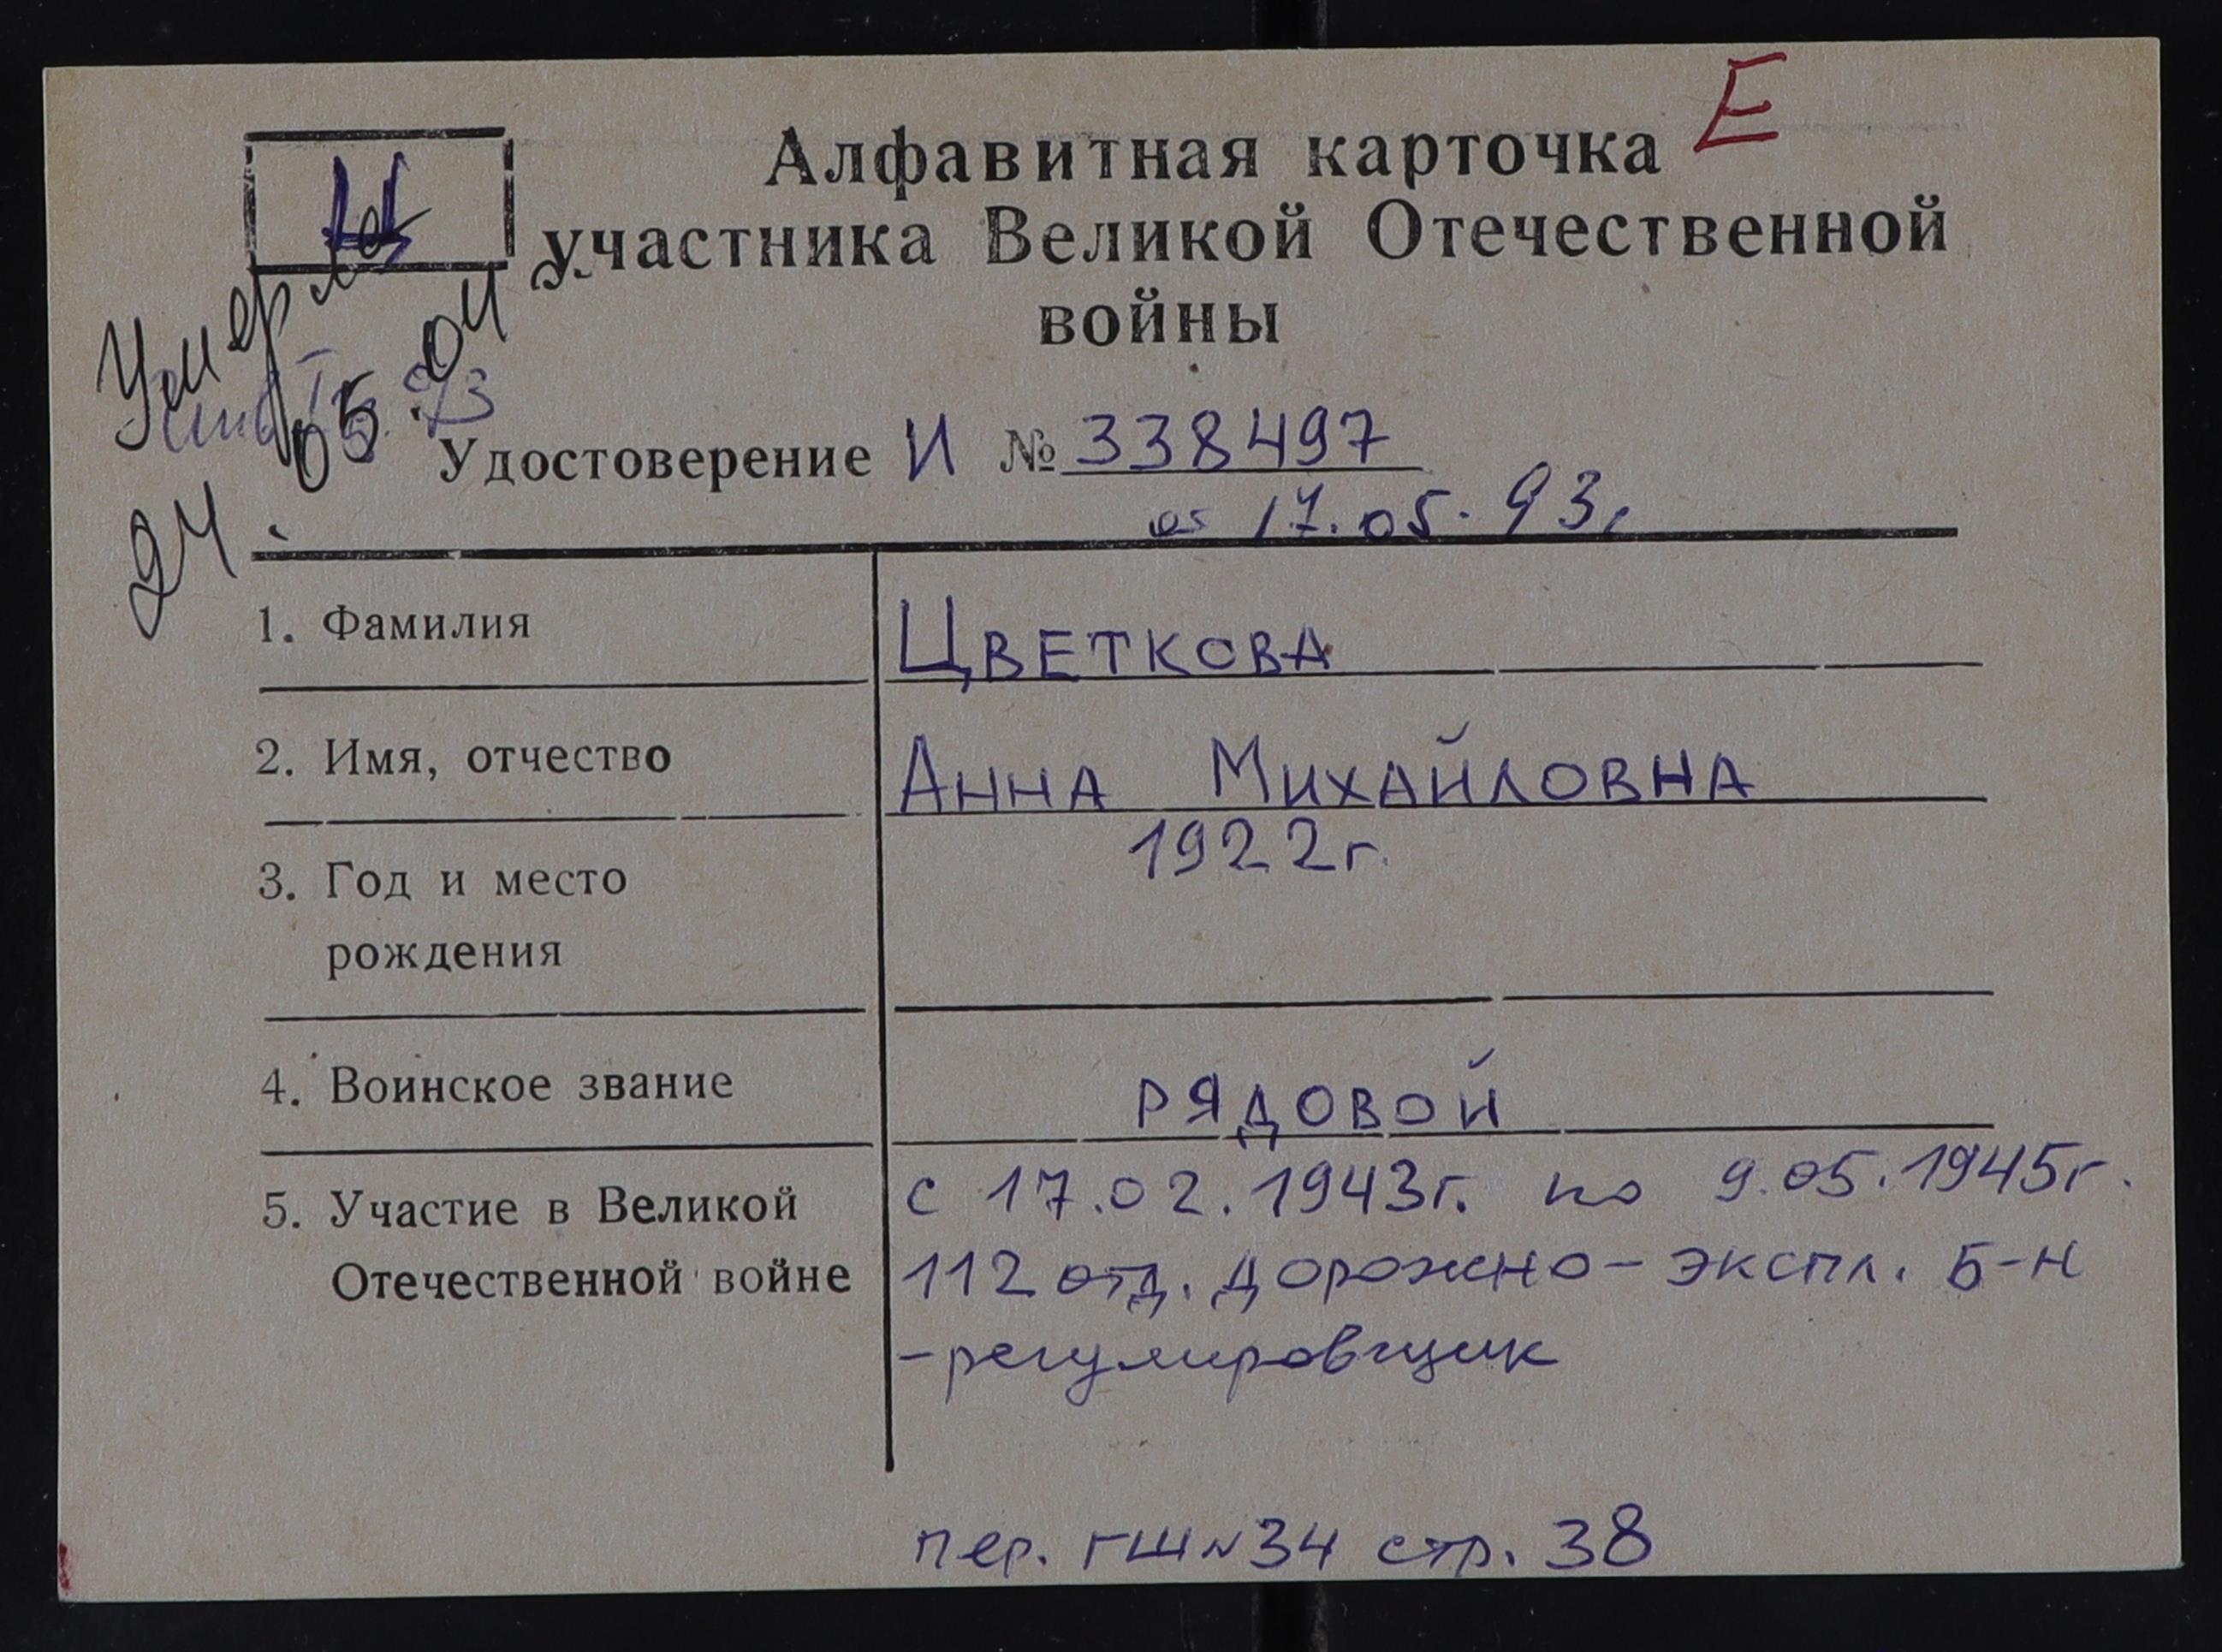 Алфавитная карточка Е
участника Великой Отечественной
войны
Умерла
24.05.04
Удостоверение И № 338497
от 17.05.93г
1. Фамилия
ЦВЕТКОВА
2. Имя, отчество
АННА МИХАЙЛОВНА
3. Год и место
рождения
1922г.
4. Воинское звание
РЯДОВОЙ
5. Участие в Великой
Отечественной войне
с 17.02.1943г. по 9.05.1945г.
112 отд. дорожно-экспл. б-н
-регулировщик
пер. ГШ N34 стр. 38